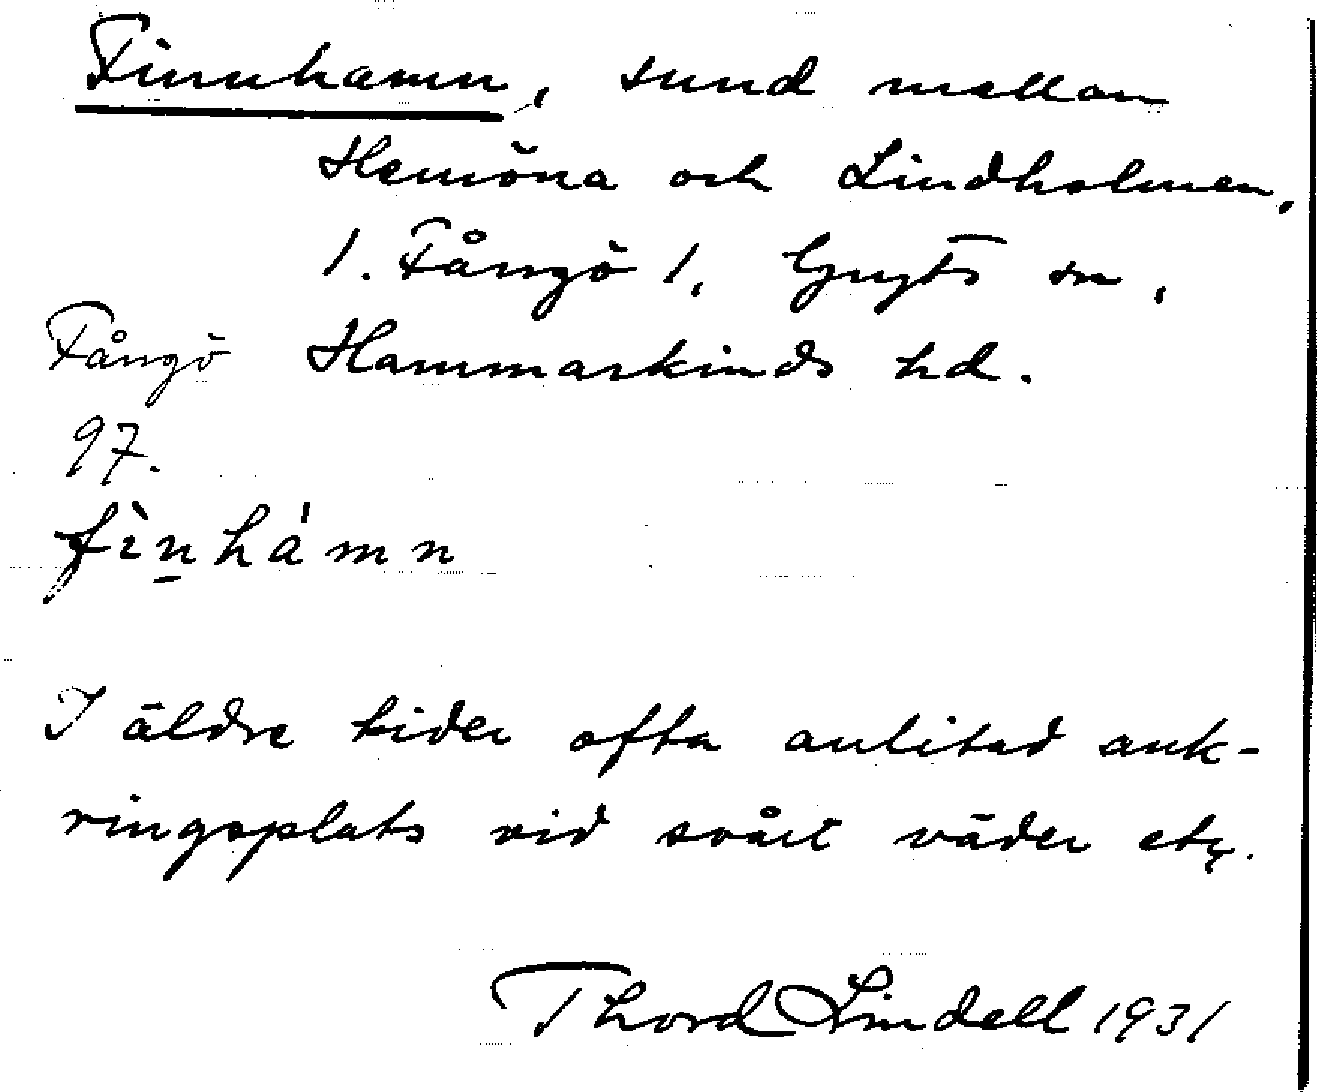 Finnhamn, sund mellan
Hemöna och Lindholmen,
1. Fångö 1, Gryts sn,
Fångö Hammarkinds hd.
97.
fìn̠hámn
I äldre tider ofta anlitad ank-
ringsplats vid svårt väder etc.
Thord Lindell 1931